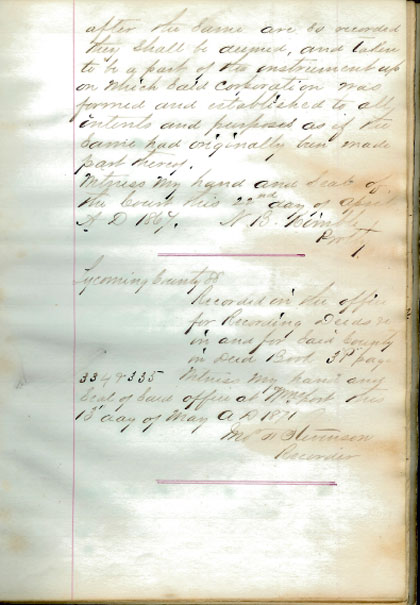 after the Same are So recorded
they Shall be deemed, and taken
to be a part of the instrument up
on which Said corporation was
formed and established to all
intents and purposes as if the
Same had originally been made
part thereof.
Witness My hand and Seal of
the Court this 22nd day of April
A D 1867. N B.
Lycoming County SS
Recorded in the office
for Recording Deeds &c
in and for Said County
in Deed Book page
334 & 335 Witness My hand and
Seal of Said office at Wmsport this
15 day of May A D 1871
Recorder